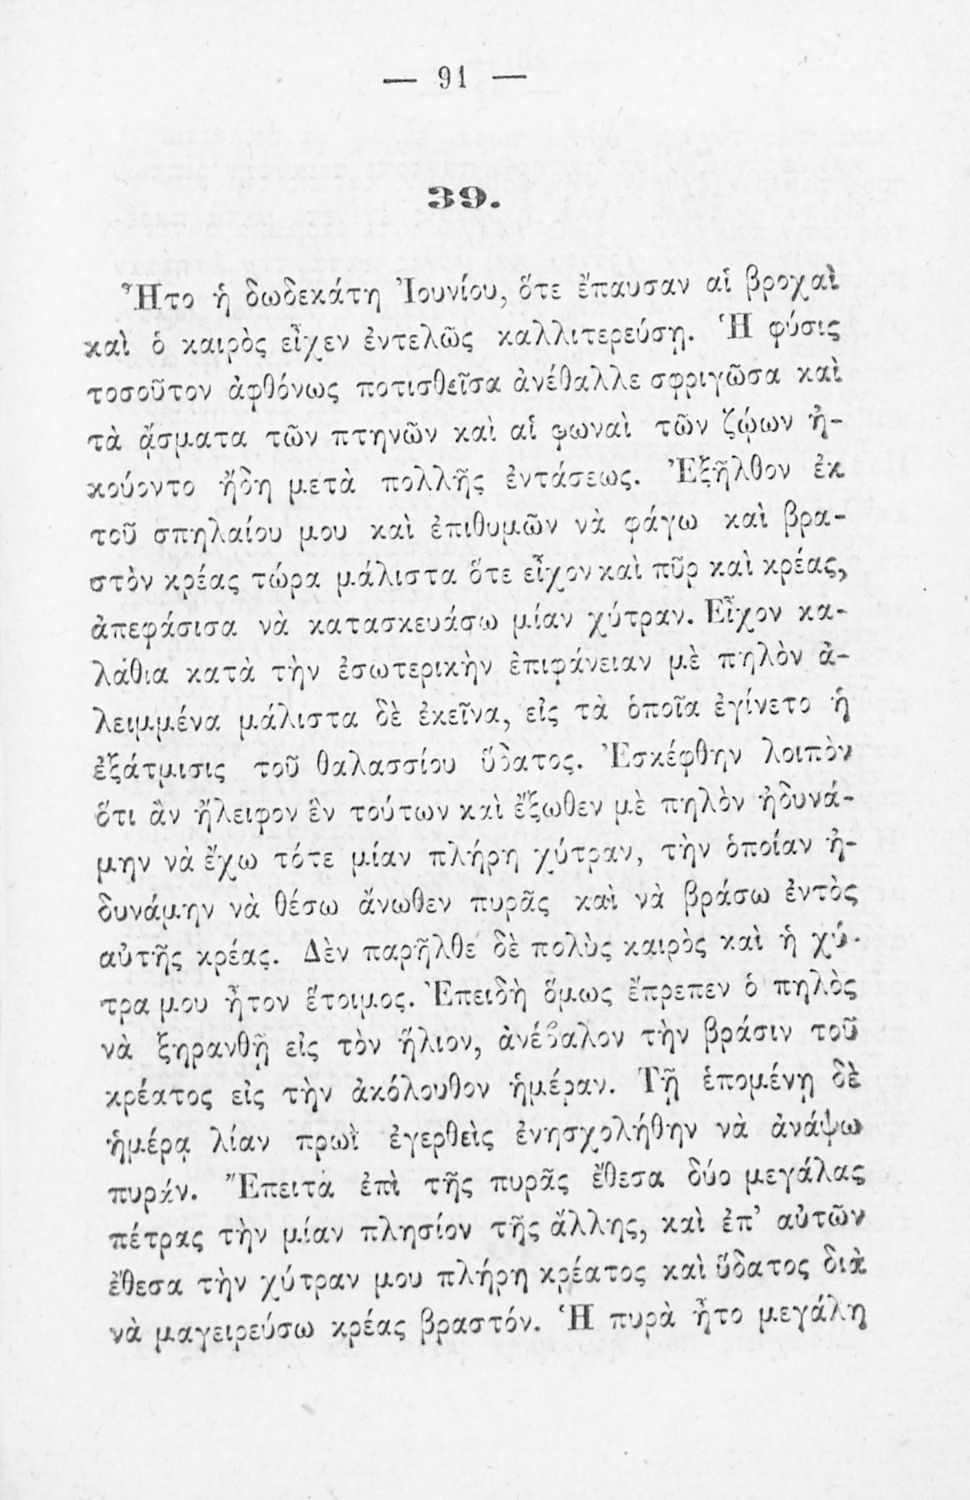 — 91 —
39.
Ἦτο ἡ δωδεκάτη Ἰουνίου, ὅτε ἔπαυσαν αἱ βροχαὶ
καὶ ὁ καιρὸς εἶχεν ἐντελῶς καλλιτερεύσῃ. Ἡ φύσις
τοσοῦτον ἀφθόνως ποτισθεῖσα ἀνέθαλλε σφριγῶσα καὶ
τὰ ᾄσματα τῶν πτηνῶν καὶ αἱ φωναὶ τῶν ζῴων ἠ-
κούοντο ἤδη μετὰ πολλῆς ἐντάσεως. Ἐξῆλθον ἐκ
τοῦ σπηλαίου μου καὶ ἐπιθυμῶν νὰ φάγω καὶ βρα-
στὸν κρέας τώρα μάλιστα ὅτε εἶχον καὶ πῦρ καὶ κρέας,
ἀπεφάσισα νὰ κατασκευάσω μίαν χύτραν. Εἶχον κα-
λάθια κατὰ τὴν ἐσωτερικὴν ἐπιφάνειαν μὲ πηλὸν ἀ-
λειμμένα μάλιστα δὲ ἐκεῖνα, εἰς τὰ ὁποῖα ἐγίνετο ἡ
ἐξάτμισις τοῦ θαλασσίου ὕδατος. Ἐσκέφθην λοιπὸν
ὅτι ἂν ἤλειφον ἓν τούτων καὶ ἔξωθεν μὲ πηλὸν ἠδυνά-
μην νὰ ἔχω τότε μίαν πλήρη χύτραν, τὴν ὁποίαν ἠ-
δυνάμην νὰ θέσω ἄνωθεν πυρᾶς καὶ νὰ βράσω ἐντὸς
αὐτῆς κρέας. Δὲν παρῆλθε δὲ πολὺς καιρὸς καὶ ἡ χύ-
τρα μου ἦτον ἕτοιμος. Ἐπειδὴ ὅμως ἔπρεπεν ὁ πηλὸς
νὰ ξηρανθῇ εἰς τὸν ἥλιον, ἀνέβαλον τὴν βράσιν τοῦ
κρέατος εἰς τὴν ἀκόλουθον ἡμέραν. Τῇ ἑπομένῃ δὲ
ἡμέρᾳ λίαν πρωῒ ἐγερθεὶς ἐνησχολήθην νὰ ἀνάψω
πυράν. Ἔπειτα ἐπὶ τῆς πυρᾶς ἔθεσα δύο μεγάλας
πέτρας τὴν μίαν πλησίον τῆς ἄλλης, καὶ ἐπ’ αὐτῶν
ἔθεσα τὴν χύτραν μου πλήρη κρέατος καὶ ὕδατος διὰ
νὰ μαγειρεύσω κρέας βραστόν. Ἡ πυρὰ ἦτο μεγάλη